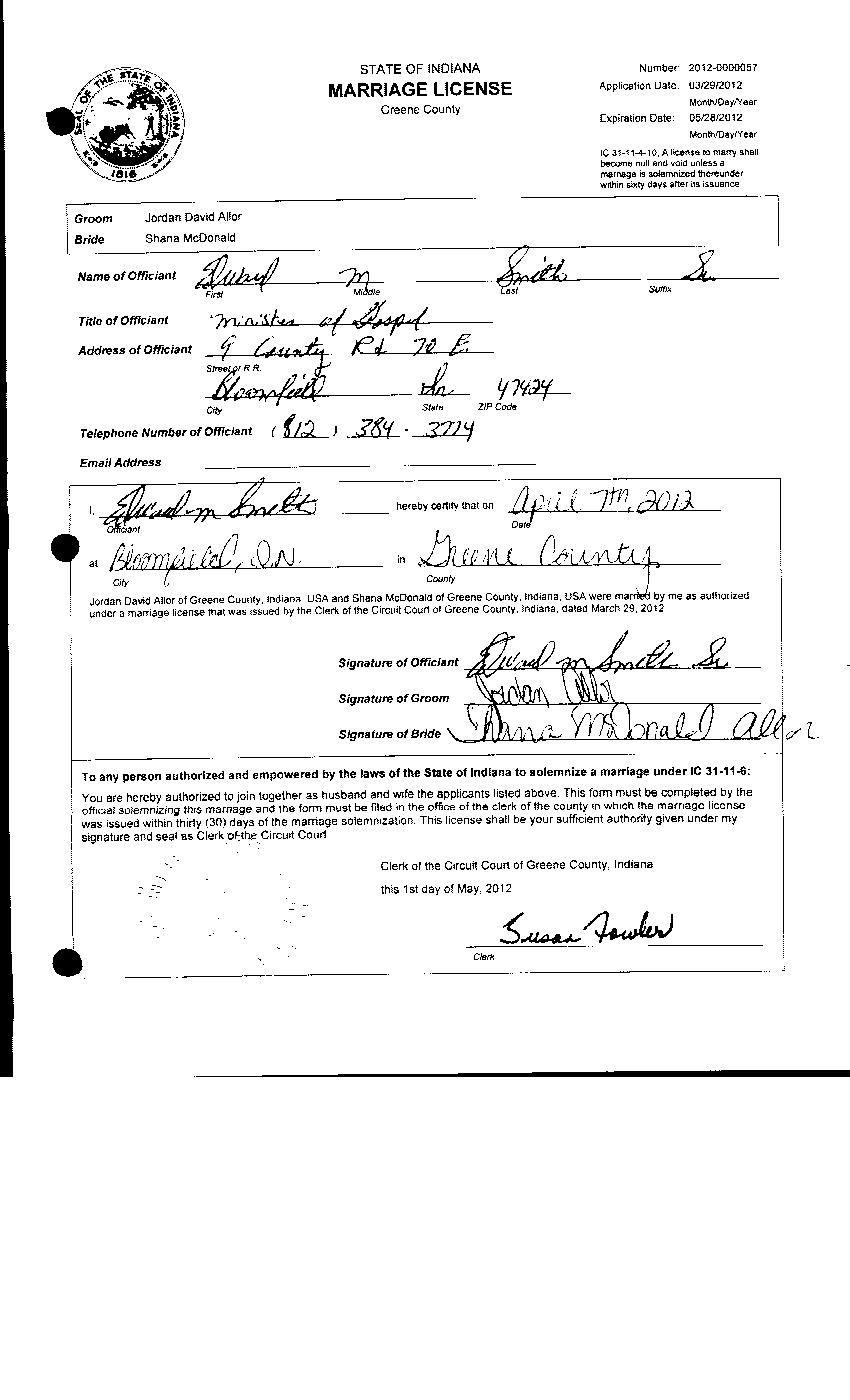 SEAL OF THE STATE OF INDIANA
1816
STATE OF INDIANA
MARRIAGE LICENSE
Greene County
Number: 2012-0000057
Application Date: 03/29/2012
Month/Day/Year
Expiration Date: 05/28/2012
Month/Day/Year
IC 31-11-4-10, A license to marry shall
become null and void unless a
marriage is solemnized thereunder
within sixty days after its issuance
Groom Jordan David Allor
Bride Shana McDonald
Name of Officiant M Smith Sr.
First Middle Last Suffix
Title of Officiant Minister of Gospel
Address of Officiant 9 County Rd 70 E.
Street or R.R.
Bloomfield In 47424
City State ZIP Code
Telephone Number of Officiant (812) 384-3774
Email Address
I, Edward M Smith hereby certify that on April 7th, 2012
Officiant Date
at Bloomfield, IN. in Greene County
City County
Jordan David Allor of Greene County, Indiana, USA and Shana McDonald of Greene County, Indiana, USA were married by me as authorized
under a marriage license that was issued by the Clerk of the Circuit Court of Greene County, Indiana, dated March 29, 2012
Signature of Officiant Edward M Smith Sr
Signature of Groom Jordan Allor
Signature of Bride Shana McDonald Allor
To any person authorized and empowered by the laws of the State of Indiana to solemnize a marriage under IC 31-11-6:
You are hereby authorized to join together as husband and wife the applicants listed above. This form must be completed by the
official solemnizing this marriage and the form must be filed in the office of the clerk of the county in which the marriage license
was issued within thirty (30) days of the marriage solemnization. This license shall be your sufficient authority given under my
signature and seal as Clerk of the Circuit Court
Clerk of the Circuit Court of Greene County, Indiana
this 1st day of May, 2012
Susan Fowler
Clerk